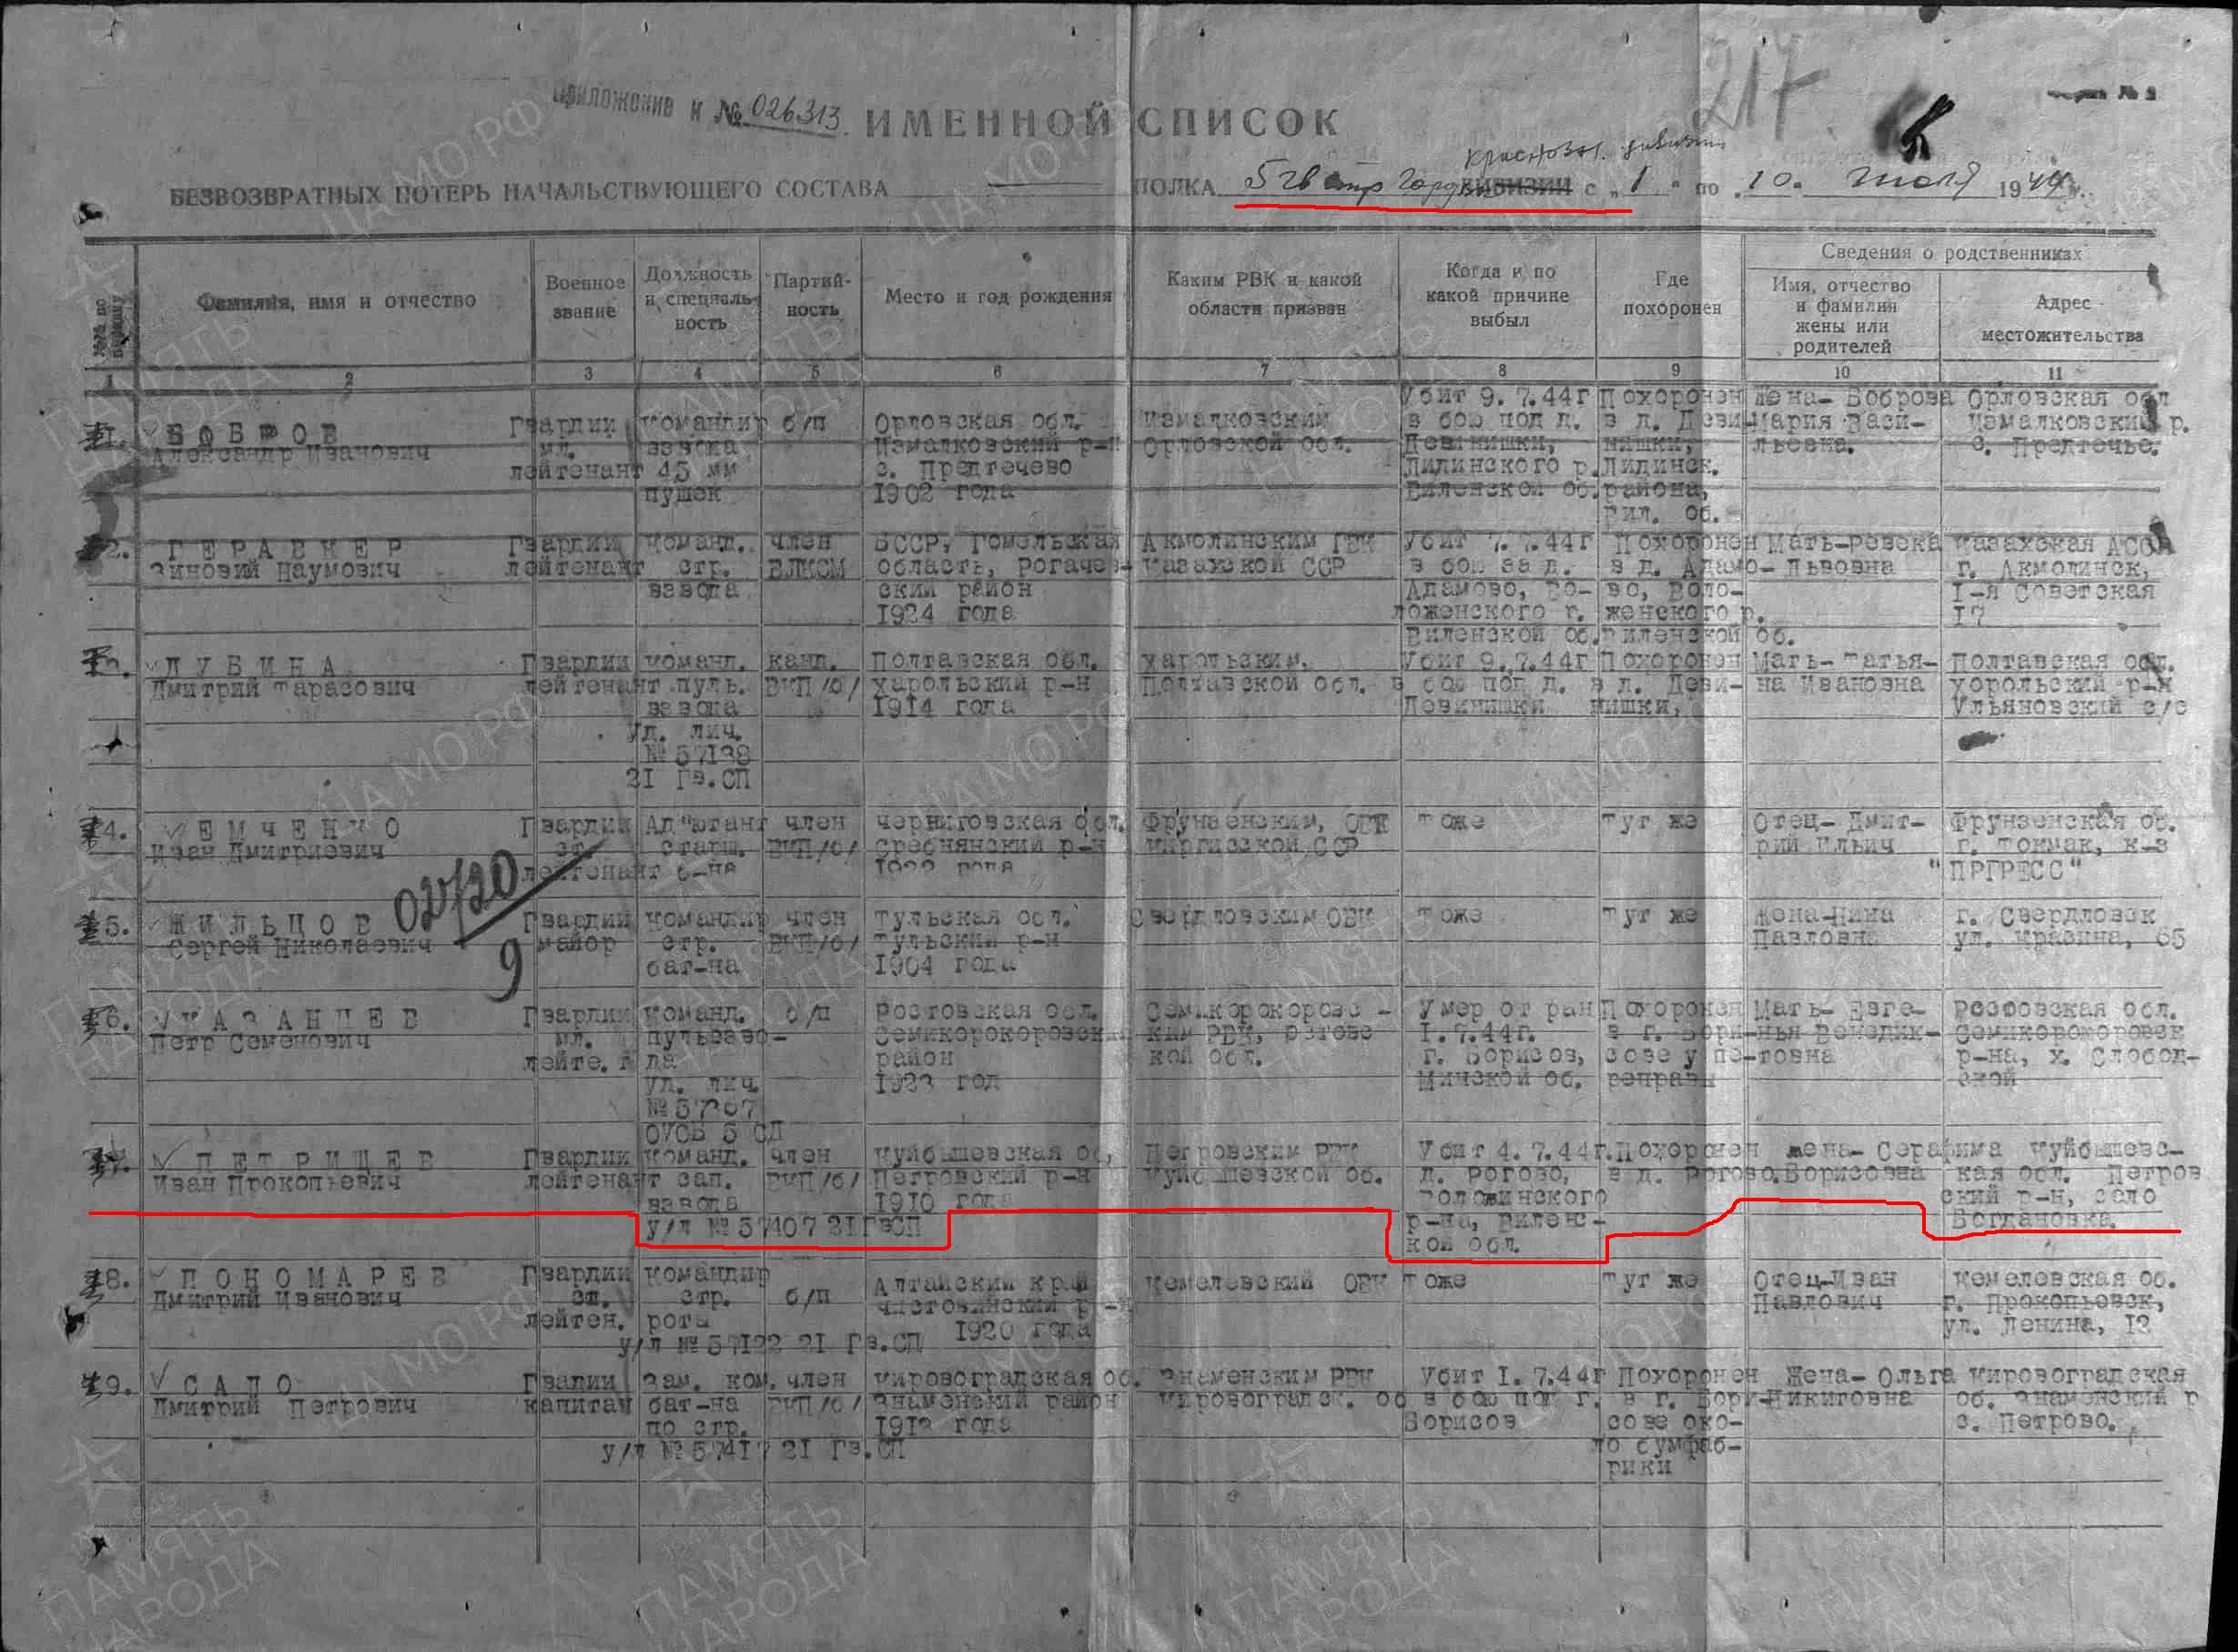 Приложение к № 026313. ИМЕННОЙ СПИСОК
217
Форма № 2
БЕЗВОЗВРАТНЫХ ПОТЕРЬ НАЧАЛЬСТВУЮЩЕГО СОСТАВА ПОЛКА 5 гв стр Город ДИВИЗИИ с „1" по „10. Июля 1944 г.
Краснозн. дивизии
№№ по порядку
Фамилия, имя и отчество
Военное звание
Должность и специальность
Партийность
Место и год рождения
Каким РВК и какой области призван
Когда и по какой причине выбыл
Где похоронен
Сведения о родственниках
Имя, отчество и фамилия жены или родителей
Адрес местожительства
1 2 3 4 5 6 7 8 9 10 11
Убит 9.7.44г Похоронен Жена- Боброва Орловская обл
1. БОБРОВ Гвардии командир б/п Орловская обл. Измалковским в бою под д. в д. Деви- Мария Васи- Измалковский р.
Александр Иванович мл. взвода Измалковский р-н Орловской обл. Девинишки, нишки, льевна. с. Предтечье.
лейтенант 45 мм с. Предтечево Лидинского р. Лидинск.
пушек 1902 года Виленской об. района,
Вил. об.
2. ГЕРАВКЕР Гвардии команд. член БССР, Гомельская Акмолинским ГВК Убит 7.7.44г Похоронен Мать-Ревека Казахская АССР
Зиновий Наумович лейтенант стр. ВЛКСМ область, Рогачев- Казахской ССР в бою за д. в д. Адамо- Львовна г. Акмолинск,
взвода ский район Адамово, Во- во, Воло- I-я Советская
1924 года ложенского г. женского р. 17
Виленской об. Виленской об.
3. ЛУБИНА Гвардии команд. канд. Полтавская обл. Харольским, Убит 9.7.44г Похоронен Мать- Татья- Полтавская обл.
Дмитрий Тарасович лейтенант пуль. ВКП/б/ Харольский р-н Полтавской обл. в бою под д. в д. Деви- на Ивановна Хорольский р-н
взвода 1914 года Девинишки нишки, Ульяновский с/с
Уд. лич.
№ 57138
21 Гв.СП
4. ЕМЧЕНКО Гвардии Ад"ютант член Черниговская обл. Фрунзенским, ОВК тоже тут же Отец- Дмит- Фрунзенская об.
Иван Дмитриевич ст. старш. ВКП/б/ Сребнянский р-н Киргисской ССР рий Ильич г. Токмак, к-з
лейтенант б-на 1922 года "ПРГРЕСС"
02/20
9
5. ЖИЛЬЦОВ Гвардии командир член Тульская обл. Свердловским ОВК тоже тут же Жена-Нина г. Свердловск
Сергей Николаевич майор стр. ВКП/б/ Тульский р-н Павловна ул. Красина, 65
бат-на 1904 года
6. КАЗАНЦЕВ Гвардии команд. б/п Ростовская обл. Семикорокоровс- Умер от ран Похоронен Мать- Евге- Росфовская обл.
Петр Семенович мл. пульвзво- Семикорокоровский ким РВК, Ростовс 1.7.44г. в г. Бори- нья Венедик- Семикорокоровск
лейте. да район кой обл. г. Борисов, сове у пе- товна р-на, х. Слобод-
уд. лич. 1923 год Минской об. реправы ской
ОУСБ 5 СД
7. ПЕТРИЩЕВ Гвардии команд. член Куйбышевская об, Петровским РВК Убит 4.7.44г. Похоронен жена- Серафима Куйбышевс-
Иван Прокопьевич лейтенант сап. ВКП/б/ Петровский р-н Куйбышевской об. д. Рогово, в д. Рогово. Борисовна кая обл. Петров
взвода 1910 года Воложинского ский р-н, село
у/л № 57407 21 ГвСП р-на, Виленс- Богдановка.
кой обл.
8. ПОНОМАРЕВ Гвардии командир Алтайский край Кемелевский ОВК тоже тут же Отец-Иван Кемеловская об.
Дмитрий Иванович ст. стр. б/п Чистовинский р-н Павлович г. Прокопьевск,
лейтен. роты 1920 года ул. Ленина, 12
у/л № 57122 21 Гв.СП
9. САЛО Гвадии Зам. ком. член Кировоградская об. Знаменским РВК Убит 1.7.44г Похоронен Жена- Ольга Кировоградская
Дмитрий Петрович капитан бат-на ВКП/б/ Знаменский район Кировоградск. об в бою под г. в г. Бори- Никитовна об. Знаменский р
по стр. 1913 года Борисов сове око- с. Петрово.
у/л № 57417 21 Гв.СП ло бумфаб-
рики